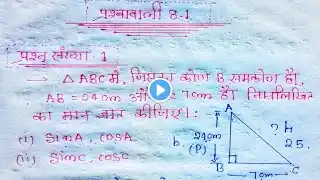 प्रश्नावली 8.1
प्रश्न संख्या 1
→ △ ABC में, जिसका कोण B समकोण है.
AB = 24 cm और = 7 cm है। निम्नलिखित
का मान ज्ञात कीजिए।:
(i) SinA, cosA
(ii) Sinc, cosc
A
24cm
(P)
? H
25.
B
7cm
C